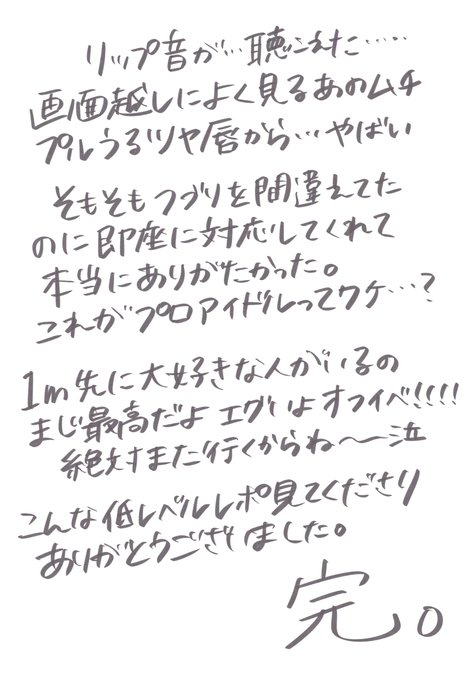 リップ音が…聴こえた……
画面越しによく見るあのムチ
プルうるツヤ唇から…やばい
そもそもつづりを間違えてた
のに即座に対応してくれて
本当にありがたかった。
これがプロアイドルってワケ…?
1m先に大好きな人がいるの
まじ最高だよ エグいよオフイベ!!!!
絶対また行くからね〜泣
こんな低レベルレポ見てくださり
ありがとうございました。
完。